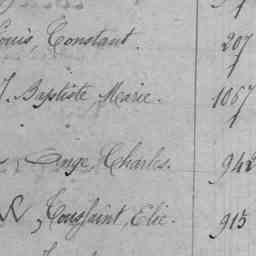 Louis, Constant. 207
J. Baptiste, Marie. 1067
Ange, Charles. 942
N, Toussaint, Elie. 915